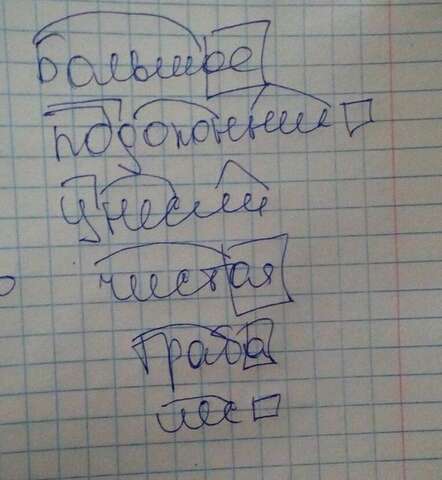 большое
подоконник
унесли
чистая
трава
лес